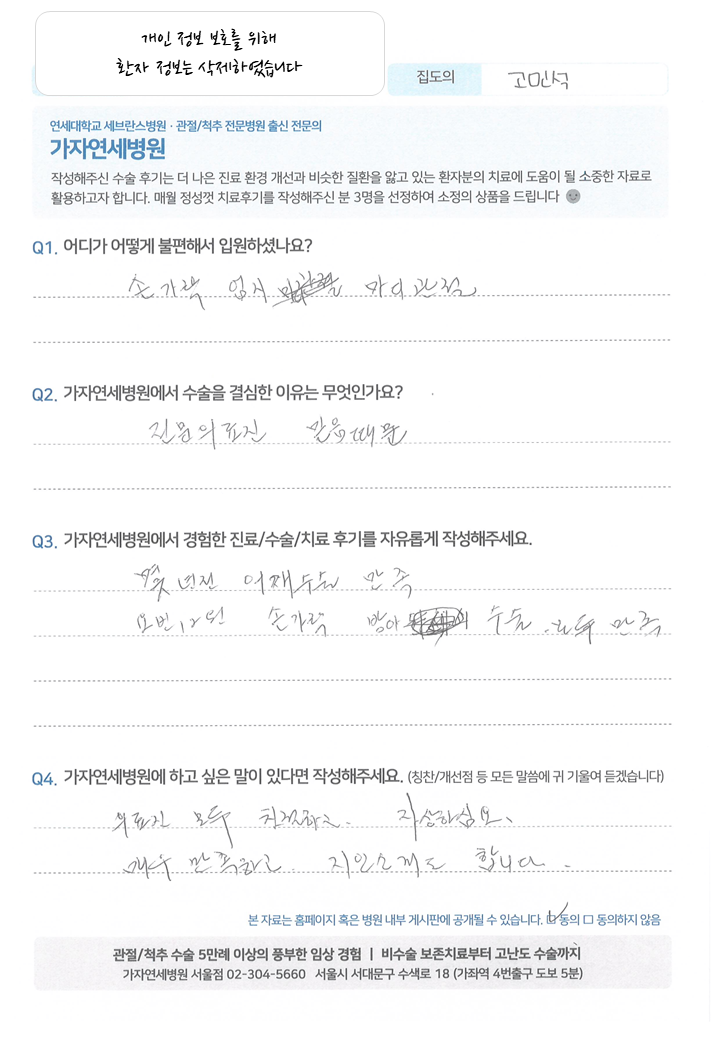 개인 정보 보호를 위해
환자 정보는 삭제하였습니다
집도의 고민석
연세대학교 세브란스병원 · 관절/척추 전문병원 출신 전문의
가자연세병원
작성해주신 수술 후기는 더 나은 진료 환경 개선과 비슷한 질환을 앓고 있는 환자분의 치료에 도움이 될 소중한 자료로
활용하고자 합니다. 매월 정성껏 치료후기를 작성해주신 분 3명을 선정하여 소정의 상품을 드립니다
Q1. 어디가 어떻게 불편해서 입원하셨나요?
손가락 엄지 마디관절
Q2. 가자연세병원에서 수술을 결심한 이유는 무엇인가요?
전문의료진 믿음때문
Q3. 가자연세병원에서 경험한 진료/수술/치료 후기를 자유롭게 작성해주세요.
몇년전 어깨수술 만족
요번 12월 손가락 수술 모두 만족
Q4. 가자연세병원에 하고 싶은 말이 있다면 작성해주세요. (칭찬/개선점 등 모든 말씀에 귀 기울여 듣겠습니다)
의료진 모두 친절하고. 자상하심요.
매우 만족하고 지인소개도 합니다.
본 자료는 홈페이지 혹은 병원 내부 게시판에 공개될 수 있습니다. ☑ 동의 □ 동의하지 않음
관절/척추 수술 5만례 이상의 풍부한 임상 경험 | 비수술 보존치료부터 고난도 수술까지
가자연세병원 서울점 02-304-5660 서울시 서대문구 수색로 18 (가좌역 4번출구 도보 5분)